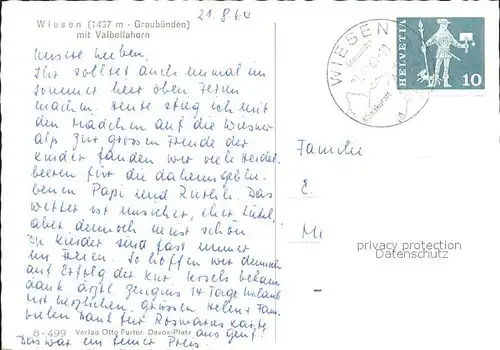 21.8.64
Wiesen (1437 m - Graubünden)
mit Valbellahorn
Unsere Lieben.
Ihr solltet auch einmal im
Sommer hier oben Ferien
machen. Heute stieg ich mit
den Mädchen auf die Wiesner
alp zur grossen Freude der
Kinder fanden wir viele Heidel-
beeren für die daheimgeblie-
benen Papi und Ruthli. Das
Wetter ist unsicher, eher kühl,
aber dennoch meist schön
Die Kinder sind fast immer
im Freien. So hoffen wir dennoch
auf Erfolg der Kur. bekam
dank ärztl. Zeugnis 14 Tage Urlaub
mit herzlichen Grüssen Helen + Fam.
vielen Dank für Rosmaries Karte
aus Genf.
Das war ein feiner Preis.
8-499 Verlag Otto Furter, Davos-Platz
WIESEN
HELVETIA
10
Familie
E.
M
privacy protection
Datenschutz